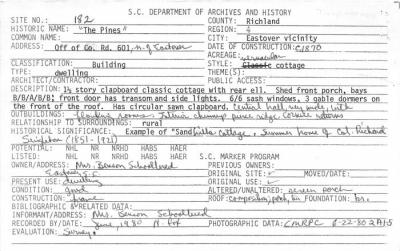 S.C. DEPARTMENT OF ARCHIVES AND HISTORY
SITE NO.: 182 COUNTY: Richland
HISTORIC NAME: "The Pines" REGION: 4
COMMON NAME: CITY: Eastover vicinity
ADDRESS: Off of Co. Rd. 601, n. of Eastover DATE OF CONSTRUCTION: C1870
ACREAGE:
CLASSIFICATION: Building STYLE: Classic cottage
TYPE: dwelling THEME(S):
ARCHITECT/CONTRACTOR: PUBLIC ACCESS:
DESCRIPTION: 1½ story clapboard classic cottage with rear ell. Shed front porch, bays
B/B/A/B/B; front door has transom and side lights. 6/6 sash windows, 3 gable dormers on
the front of the roof. Has circular sawn clapboard, Central hall,
OUTBUILDINGS: Interior chimneys
RELATIONSHIP TO SURROUNDINGS: rural
HISTORICAL SIGNIFICANCE: Example of "Sandhills Cottage, Summer home of Col. Richard
Singleton (1851-1921)
POTENTIAL: NHL NR NRHD HABS HAER
LISTED: NHL NR NRHD HABS HAER S.C. MARKER PROGRAM
OWNER/ADDRESS: Mrs. Benson PREVIOUS OWNERS:
Eastover S.C. ORIGINAL SITE: ✓ MOVED/DATE:
PRESENT USE: dwelling ORIGINAL USE: ✓
CONDITION: good ALTERED/UNALTERED: screen porch
CONSTRUCTION: frame ROOF: composition, FOUNDATION:
BIBLIOGRAPHIC RELATED DATA:
INFORMANT/ADDRESS: Mrs. Benson
RECORDED BY/DATE: June, 1980 N. Fox PHOTOGRAPHIC DATA: CMRPC 6-22-80
EVALUATION: Survey